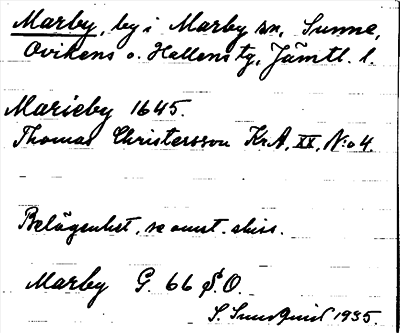 Marby, by i Marby sn, Sunne,
Ovikens o. Hallens tg, Jämtl. l.
Marieby 1645.
Thomas Christersson KrA, XX, No 4.
Belägenhet, se omst. skiss.
Marby G. 66 S.O.
S. Sundquist 1935